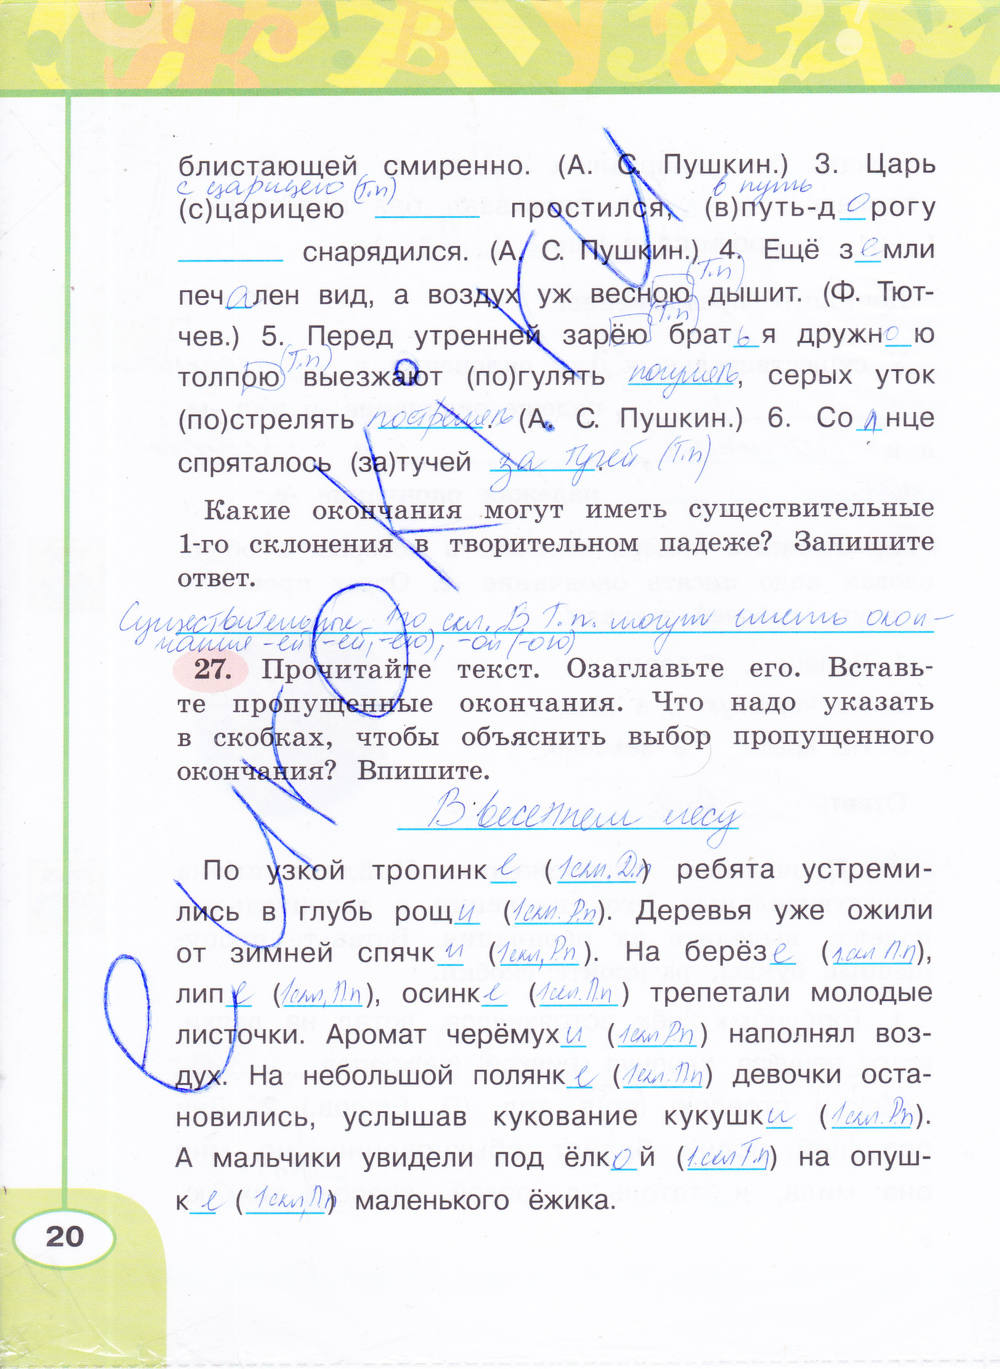 блистающей смиренно. (А. С. Пушкин.) 3. Царь
с царицею (Т.п) в путь
(с)царицею ____ простился, (в)путь-дорогу
____ снарядился. (А. С. Пушкин.) 4. Ещё земли
(Т.п)
печален вид, а воздух уж весною дышит. (Ф. Тют-
(Т.п)
чев.) 5. Перед утренней зарёю братья дружною
(Т.п)
толпою выезжают (по)гулять погулять, серых уток
(по)стрелять пострелять. (А. С. Пушкин.) 6. Солнце
спряталось (за)тучей за тучей (Т.п)
Какие окончания могут иметь существительные
1-го склонения в творительном падеже? Запишите
ответ.
Существительные 1го скл. в Т.п. могут иметь окон-
чания -ей (-ёй, -ею), -ой (-ою)
27. Прочитайте текст. Озаглавьте его. Вставь-
те пропущенные окончания. Что надо указать
в скобках, чтобы объяснить выбор пропущенного
окончания? Впишите.
В весеннем лесу
По узкой тропинке (1скл. Д.п) ребята устреми-
лись в глубь рощи (1скл. Р.п). Деревья уже ожили
от зимней спячки (1скл, Р.п). На берёзе (1скл П.п),
липе (1скл, П.п), осинке (1скл. П.п) трепетали молодые
листочки. Аромат черёмухи (1скл Р.п) наполнял воз-
дух. На небольшой полянке (1скл. П.п) девочки оста-
новились, услышав кукование кукушки (1скл. Р.п).
А мальчики увидели под ёлкой (1.скл Т.п) на опуш-
ке (1скл, П.п) маленького ёжика.
20
еуроки.ru